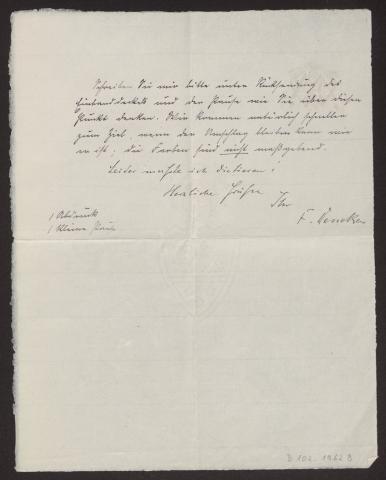 Schreiben Sie mir bitte unter Rücksendung des
Einbanddeckels und der Pause wie Sie über diesen
Punkt denken. Wir kommen natürlich schneller
zum Ziel, wenn der Umschlag bleiben kann wie
er ist. Die Farben sind nicht maßgebend.
Leider mußte ich diktieren!
Herzliche Grüße
Ihr
F.
1 Abdruck
1 kleine Pause
D 102. 1962 B